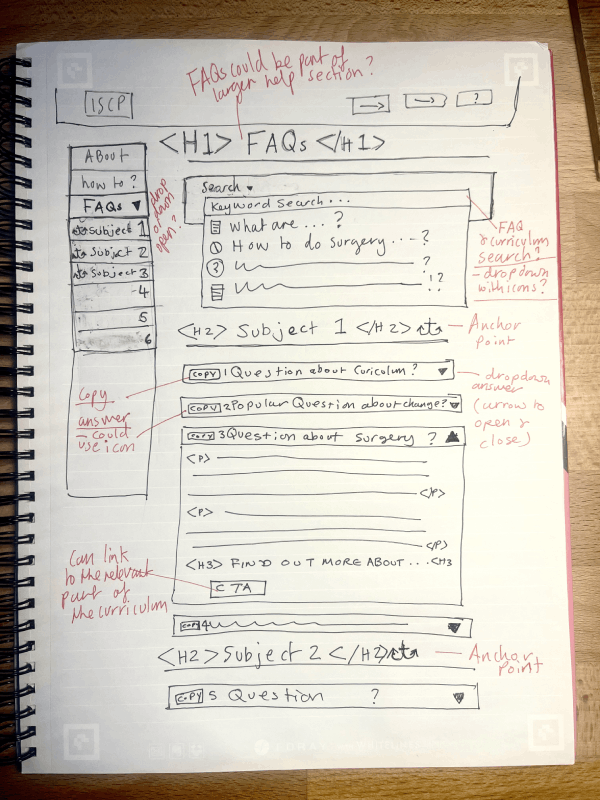 FAQs could be part of
larger help section?
ISCP
?
<H1> FAQs </H1>
ABOUT
how to ?
FAQs
Subject 1
Subject 2
Subject 3
4
5
6
drop
down
open?
Search
Keyword Search...
what are ... ?
How to do surgery ... ?
?
?
!?
FAQ
& curriculum
search?
- dropdown
with icons?
<H2> Subject 1 </H2>
Anchor
Point
COPY 1 Question about Curiculum?
COPY 2 Popular Question about change?
COPY 3 Question about surgery ?
dropdown
answer
(arrow to
open &
close)
Copy
answer
- could
use icon
<P>
</P>
<P>
</P>
<H3> FIND OUT MORE ABOUT ... <H3
CTA
Can link
to the relevant
part of
the curriculum
COPY 4
<H2> Subject 2 </H2>
Anchor
Point
COPY 5 Question ?